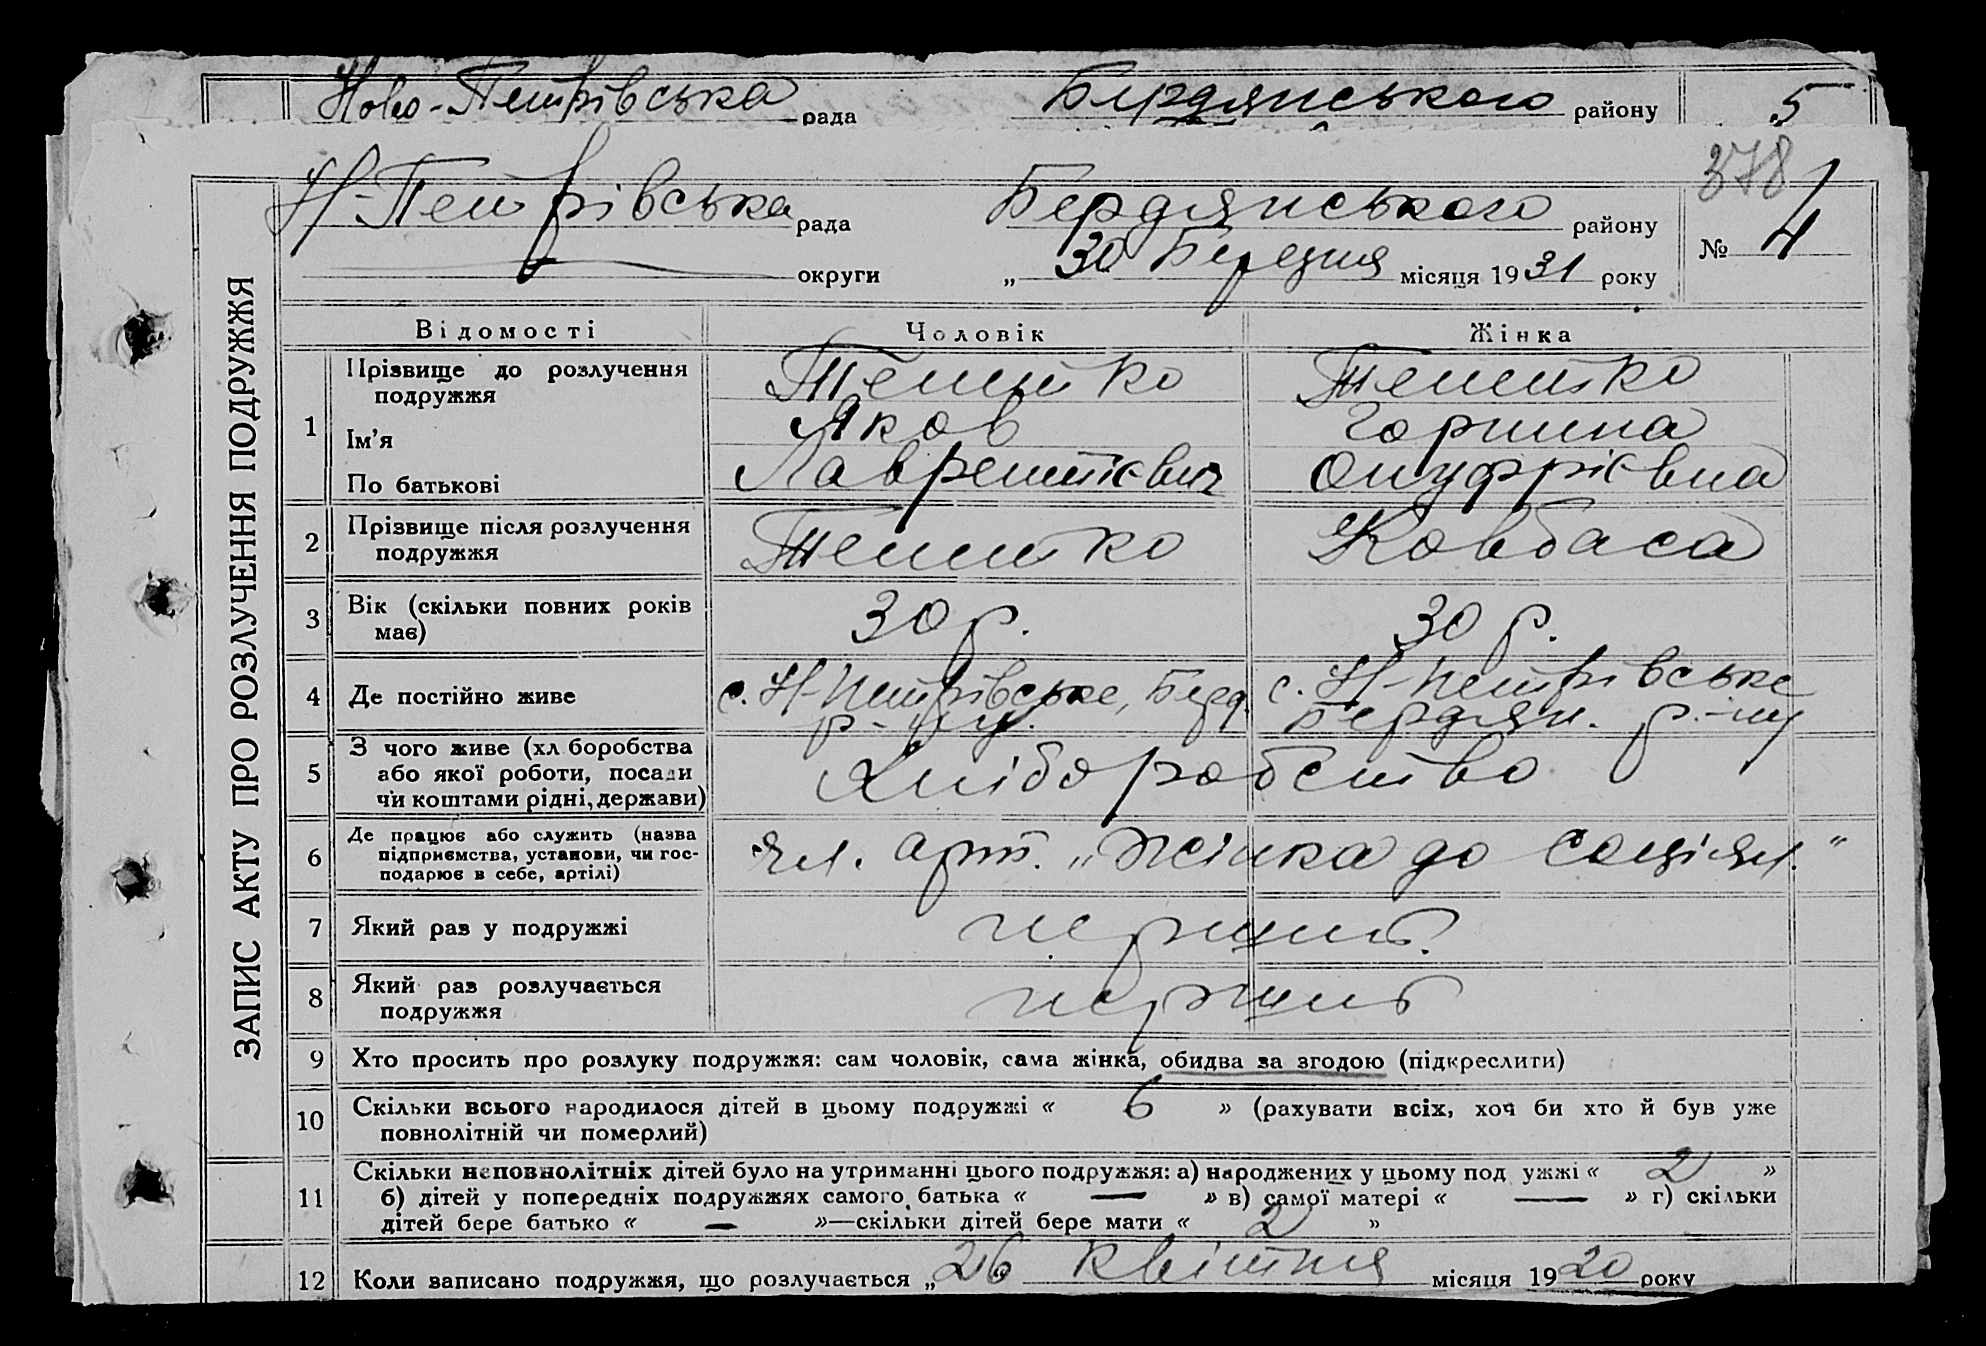 Ново-Петрівська рада Бердянського району 5
378
Н-Петрівська рада Бердянського району
№ 4
округи „ 30 Березня місяця 1931 року
ЗАПИС АКТУ ПРО РОЗЛУЧЕННЯ ПОДРУЖЖЯ
Відомості Чоловік Жінка
1 Прізвище до розлучення
подружжя
Ім'я Яков Горпина
По батькові Лаврентієвич Онуфрієвна
2 Прізвище після розлучення Ковбаса
подружжя
3 Вік (скільки повних років 30 р. 30 р.
має)
4 Де постійно живе с. Н-Петрівське, Берд. с. Н-Петрівське
р-ну. Бердян. р-ну
5 З чого живе (хл боробства
або якої роботи, посади Хліборобство
чи коштами рідні, держави)
6 Де працює або служить (назва
підприємства, установи, чи гос- чл. арт. „Жінка до соціял."
подарює в себе, артілі)
7 Який раз у подружжі перший.
8 Який раз розлучається перший
подружжя
9 Хто просить про розлуку подружжя: сам чоловік, сама жінка, обидва за згодою (підкреслити)
10 Скільки всього народилося дітей в цьому подружжі « 6 » (рахувати всіх, хоч би хто й був уже
повнолітній чи померлий)
11 Скільки неповнолітніх дітей було на утриманні цього подружжя: а) народжених у цьому под ужжі « 2 »
б) дітей у попередніх подружжях самого батька « — » в) самої матері « — » г) скільки
дітей бере батько « — »—скільки дітей бере мати « 2 »
12 Коли записано подружжя, що розлучається „ 26 " квітня місяця 1920 року